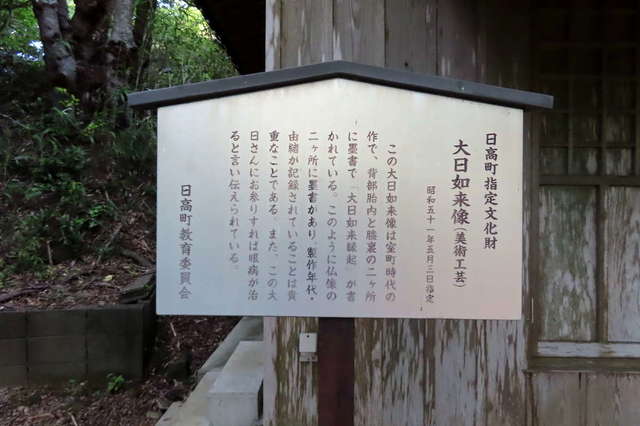 日高町指定文化財
大日如来像(美術工芸)
昭和五十一年五月三日指定
この大日如来像は室町時代の
作で、背部胎内と膝裏の二ヶ所
に墨書で「大日如来縁起」が書
かれている。このように仏像の
二ヶ所に墨書があり、製作年代・
由緒が記録されていることは貴
重なことである。また、この大
日さんにお参りすれば眼病が治
ると言い伝えられている。
日高町教育委員会